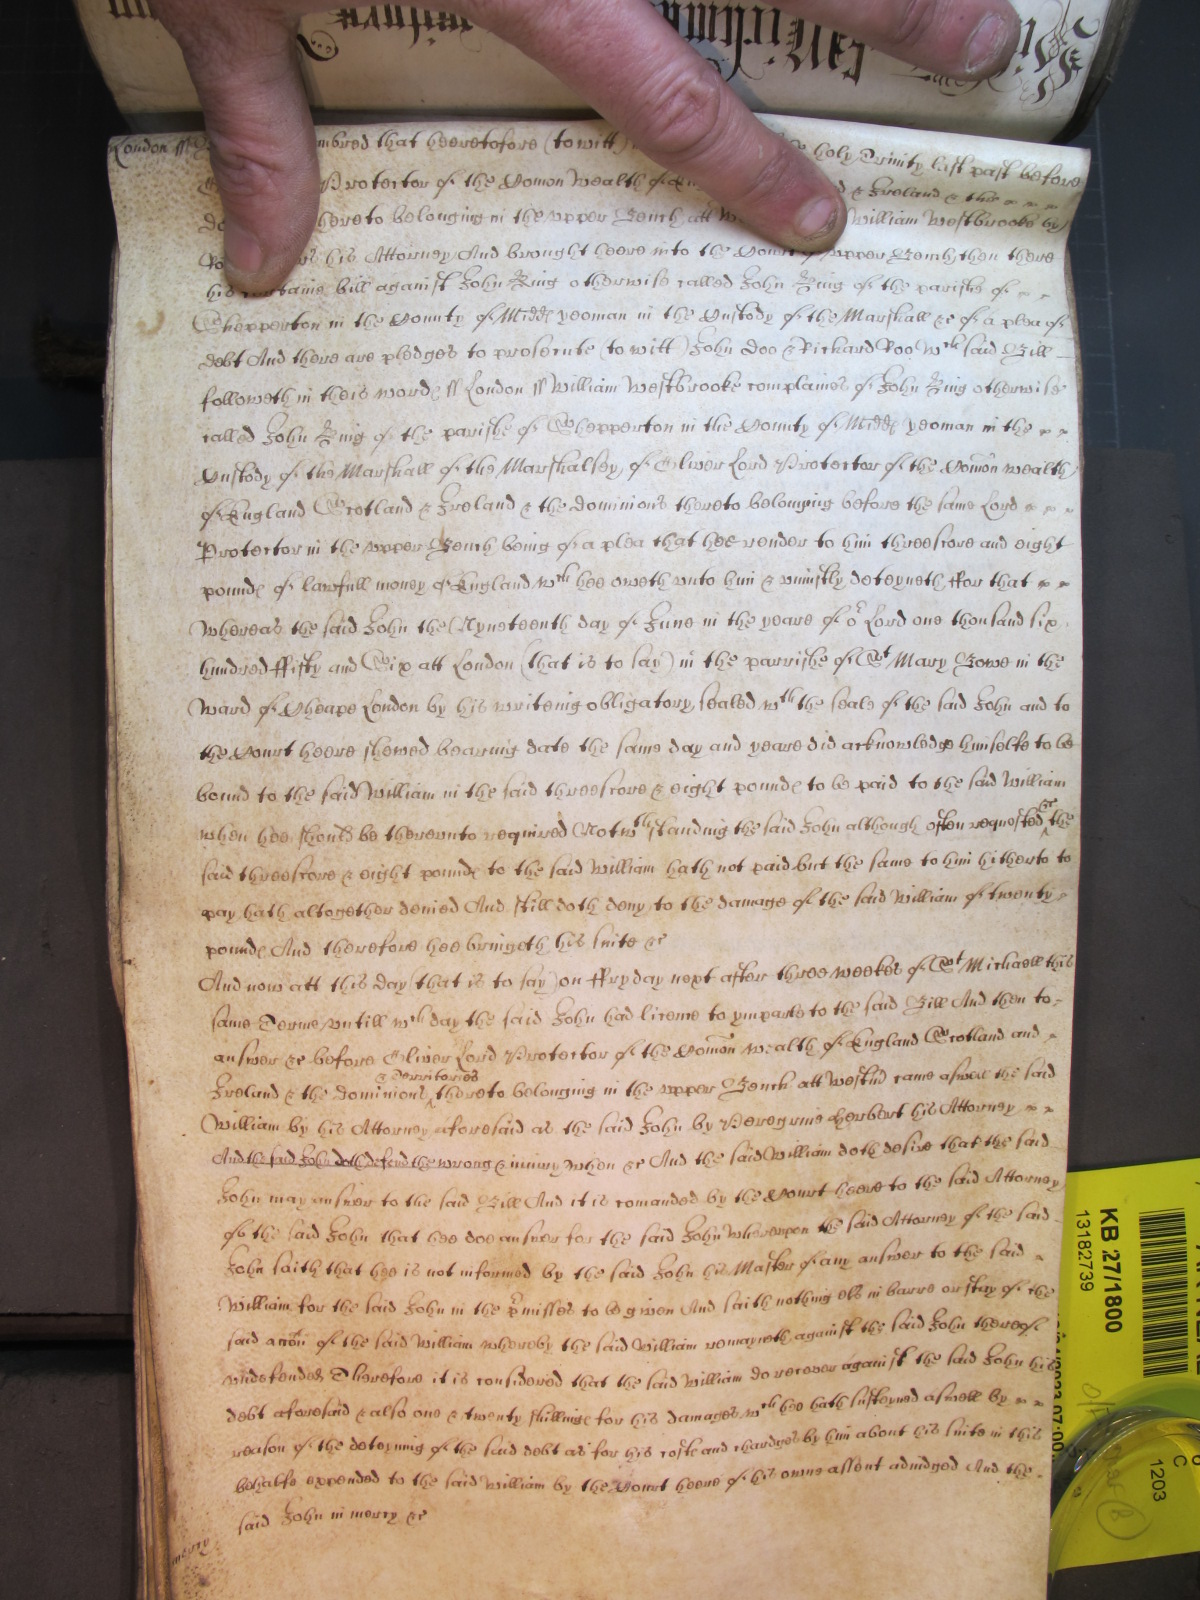 London ss mbred that heeretofore (to witt) holy Trinity last past before
Protector of the Comon Wealth of & Ireland & the
hereto belonging in the upper Bench att William Westbrooke by
his Attorney And brought heere into the Court upper Bench then there
his certaine bill against John King otherwise called John King of the parishe of
Shepperton in the County of Midd yeoman in the Custody of the Marshall &c of a plea of
debt And there are pledges to prosecute (to witt) John Doo & Richard Roo Wch said Bill
followeth in theis word ss London ss William Westbrooke complaines of John King otherwise
called John King of the parishe of Shepperton in the County of Midd yeoman in the
Custody of the Marshall of the Marshalsey of Oliver Lord Protector of the Comon wealth
of England Scotland & Ireland & the dominions thereto belonging before the same Lord
Protector in the upper Bench being of a plea that hee render to him threescore and eight
pound of lawfull money of England wch hee oweth unto him & uniustly deteyneth ffor that
Whereas the said John the Nyneteenth day of June in the yeare of or Lord one thousand six
hundred ffifty and Six att London (that is to say) in the parrishe of St Mary Bowe in the
Ward of Cheape London by his writeing obligatory sealed wth the seale of the said John and to
the Court heere shewed bearing date the same day and yeare did acknowledge himselfe to be
bound to the said William in the said threescore & eight pound to be paid to the said William
when hee should be thereunto required Notwthstanding the said John although often requested &c the
said threescore & eight pound to the said William hath not paid but the same to him hitherto to
pay hath altogether denied And still doth deny to the damage of the said William of twenty
pound And therefore hee bringeth his suite &c
And now att this day (that is to say) on ffryday next after three weekes of St Michaell this
same Terme untill wch day the said John had licence to ymparle to the said Bill And then to
answer &c before Oliver Lord Protector of the Comon wealth of England Scotland and
Ireland & the dominions & Territories thereto belonging in the upper Bench att Westm came aswell the said
William by his Attorney aforesaid as the said John by Peregrine Herbert his Attorney
And the said John doth defend the wrong & iniury when &c And the said William doth desire that the said
John may answer to the said Bill And it is comanded by the Court heere to the said Attorney
of the said John that hee doe answer for the said John Whereupon the said Attorney of the said
John saith that hee is not informed by the said John his Master of any answer to the said
William for the said John in the pmisses to be given And saith nothing els in barre or stay of the
said accon of the said William whereby the said William remayneth against the said John thereof
undefended Therefore it is considered that the said William do recover against the said John his
debt aforesaid & also one & twenty shilling for his damages wch hee hath susteyned aswell by
reason of the deteyning of the said debt as for his cost and chardges by him about his suite in this
behalfe expended to the said William by the Court heere of his owne assent adiudged And the
said John in mercy &c
mercy
KB 27/1800
13182739
C
1203